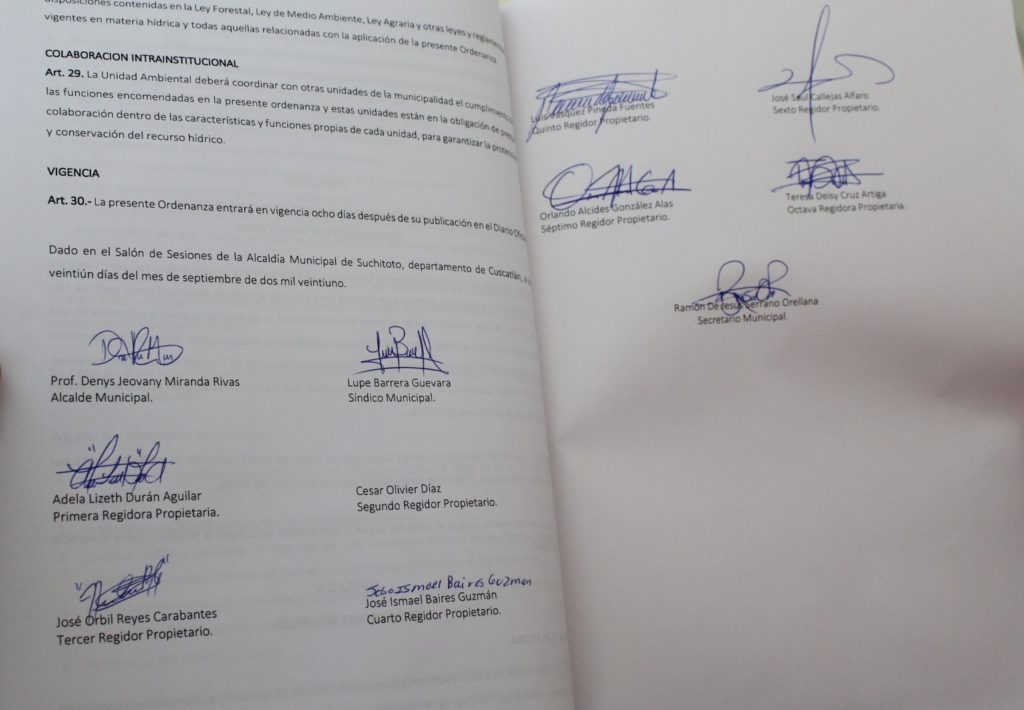 disposiciones contenidas en la Ley Forestal, Ley de Medio Ambiente, Ley Agraria y otras leyes y reglamentos
vigentes en materia hídrica y todas aquellas relacionadas con la aplicación de la presente Ordenanza.
COLABORACION INTRAINSTITUCIONAL
Art. 29. La Unidad Ambiental deberá coordinar con otras unidades de la municipalidad el cumplimiento
las funciones encomendadas en la presente ordenanza y estas unidades están en la obligación de
colaboración dentro de las características y funciones propias de cada unidad, para garantizar la protección
y conservación del recurso hídrico.
VIGENCIA
Art. 30.- La presente Ordenanza entrará en vigencia ocho días después de su publicación en el Diario
Dado en el Salón de Sesiones de la Alcaldía Municipal de Suchitoto, departamento de Cuscatlán, a
veintiún días del mes de septiembre de dos mil veintiuno.
Prof. Denys Jeovany Miranda Rivas
Alcalde Municipal.
Lupe Barrera Guevara
Síndico Municipal.
Adela Lizeth Durán Aguilar
Primera Regidora Propietaria.
Cesar Olivier Díaz
Segundo Regidor Propietario.
José Orbil Reyes Carabantes
Tercer Regidor Propietario.
Jose Ismael Baires Guzman
José Ismael Baires Guzmán
Cuarto Regidor Propietario.
Luis Vásquez Pineda Fuentes
Quinto Regidor Propietario.
José Saul Callejas Alfaro
Sexto Regidor Propietario.
Orlando Alcides González Alas
Séptimo Regidor Propietario.
Teresa Deisy Cruz Artiga
Octava Regidora Propietaria.
Ramón De Jesús Serrano Orellana
Secretario Municipal.